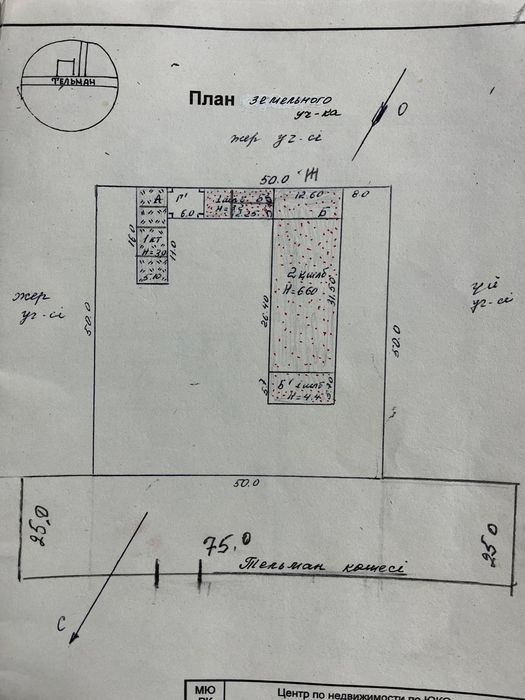 ТЕЛЬМАН
План земельного
уч-ка
О
жер уч-сі
50.0 Ж
А
Г'
12.60
8.0
Б
6.0
16.0
11.0
1 кт
Н=30
5.10
2 қшлб
Н=660
26.40
31.50
жер
уч-сі
үй
уч-сі
50.0
50.0
Б' 1 шлб
Н=4.4
5.7
5.70
50.0
25.0
75.0
25.0
Тельман көшесі
С
МЮ
РК
Центр по недвижимости по ЮКО